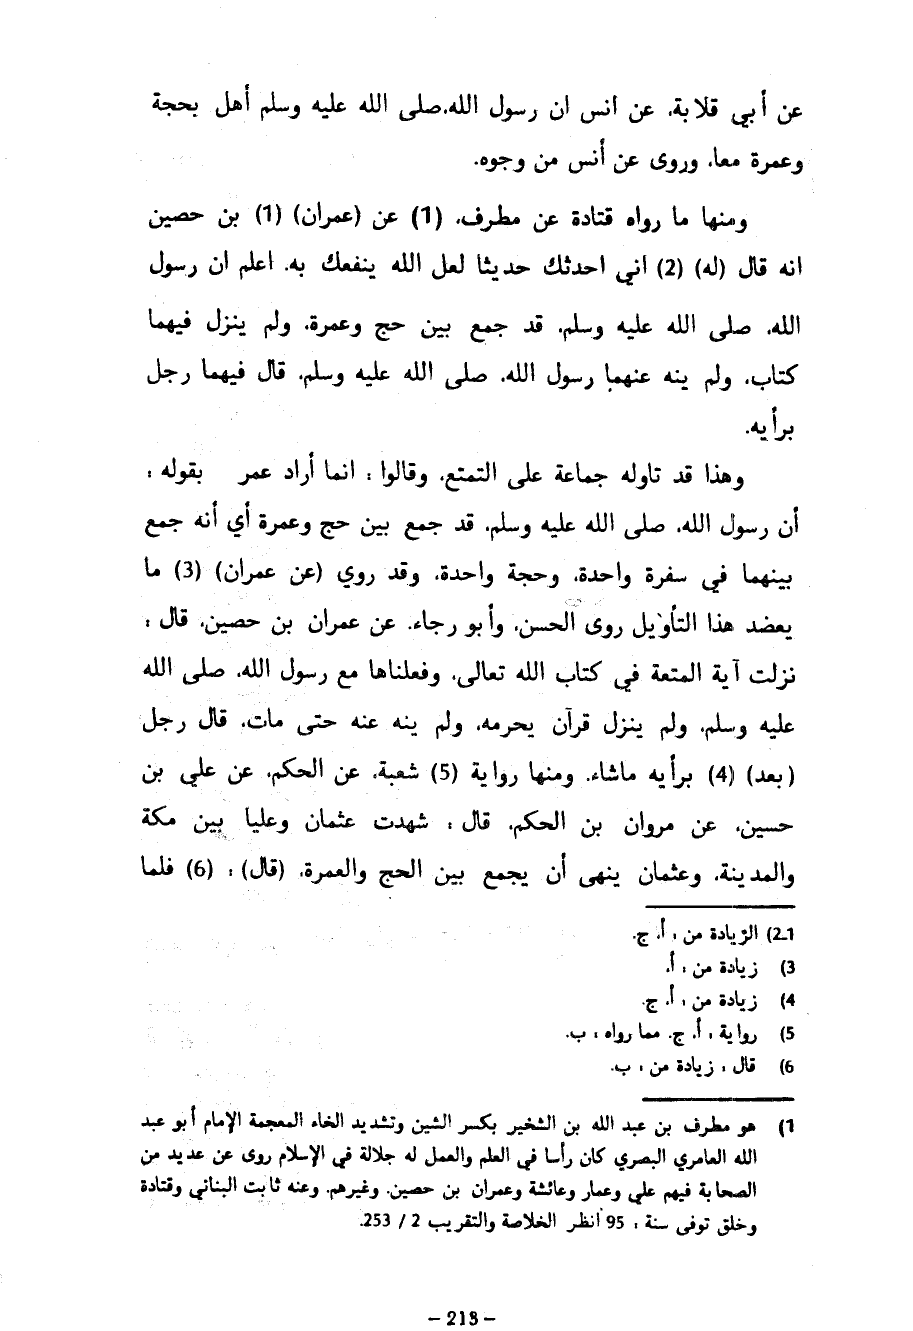 عن أبي قلابة، عن انس ان رسول الله، صلى الله عليه وسلم أهل بحجة
وعمرة معا، وروى عن أنس من وجوه.
ومنها ما رواه قتادة عن مطرف، (1) عن (عمران) (1) بن حصين
انه قال (له) (2) اني احدثك حديثا لعل الله ينفعك به، اعلم ان رسول
الله، صلى الله عليه وسلم، قد جمع بين حج وعمرة، ولم ينزل فيهما
كتاب، ولم ينه عنهما رسول الله، صلى الله عليه وسلم، قال فيهما رجل
برأيه.
وهذا قد تاوله جماعة على التمتع، وقالوا : انما أراد عمر بقوله :
أن رسول الله، صلى الله عليه وسلم، قد جمع بين حج وعمرة أي أنه جمع
بينهما في سفرة واحدة، وحجة واحدة، وقد روي (عن عمران) (3) ما
يعضد هذا التأويل روى الحسن، وأبو رجاء، عن عمران بن حصين، قال :
نزلت آية المتعة في كتاب الله تعالى، وفعلناها مع رسول الله، صلى الله
عليه وسلم، ولم ينزل قرآن يحرمه، ولم ينه عنه حتى مات، قال رجل
(بعد) (4) برأيه ماشاء. ومنها رواية (5) شعبة، عن الحكم، عن علي بن
حسين، عن مروان بن الحكم، قال : شهدت عثمان وعليا بين مكة
والمدينة، وعثمان ينهى أن يجمع بين الحج والعمرة، (قال) : (6) فلما
1ـ2) الزيادة من : أ، ج.
3) زيادة من : أ.
4) زيادة من : أ، ج.
5) رواية : أ، ج. مما رواه : ب.
6) قال : زيادة من : ب.
1) هو مطرف بن عبد الله بن الشخير بكسر الشين وتشديد الخاء المعجمة الإمام أبو عبد
الله العامري البصري كان رأسا في العلم والعمل له جلالة في الإسلام روى عن عديد من
الصحابة فيهم علي وعمار وعائشة وعمران بن حصين. وغيرهم. وعنه ثابت البناني وقتادة
وخلق توفى سنة : 95 أنظر الخلاصة والتقريب 2 / 253.
– 213 –